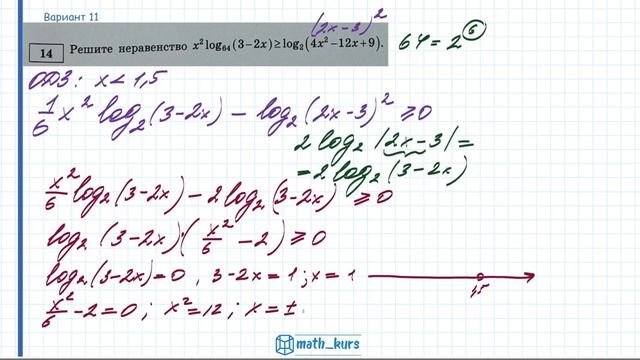 Вариант 11
(2x-3)²
14 Решите неравенство x² log₆₄(3−2x) ≥ log₂(4x²−12x+9).
64 = 2⁶
ОДЗ: x < 1,5
1/6 x² log₂(3-2x) - log₂(2x-3)² ≥ 0
2 log₂ |2x-3| =
= 2 log₂ (3-2x)
x²/6 log₂(3-2x) - 2 log₂(3-2x) ≥ 0
log₂ (3-2x) · (x²/6 - 2) ≥ 0
log₂(3-2x) = 0, 3-2x = 1; x = 1
1,5
x²/6 - 2 = 0; x² = 12; x = ±
math_kurs